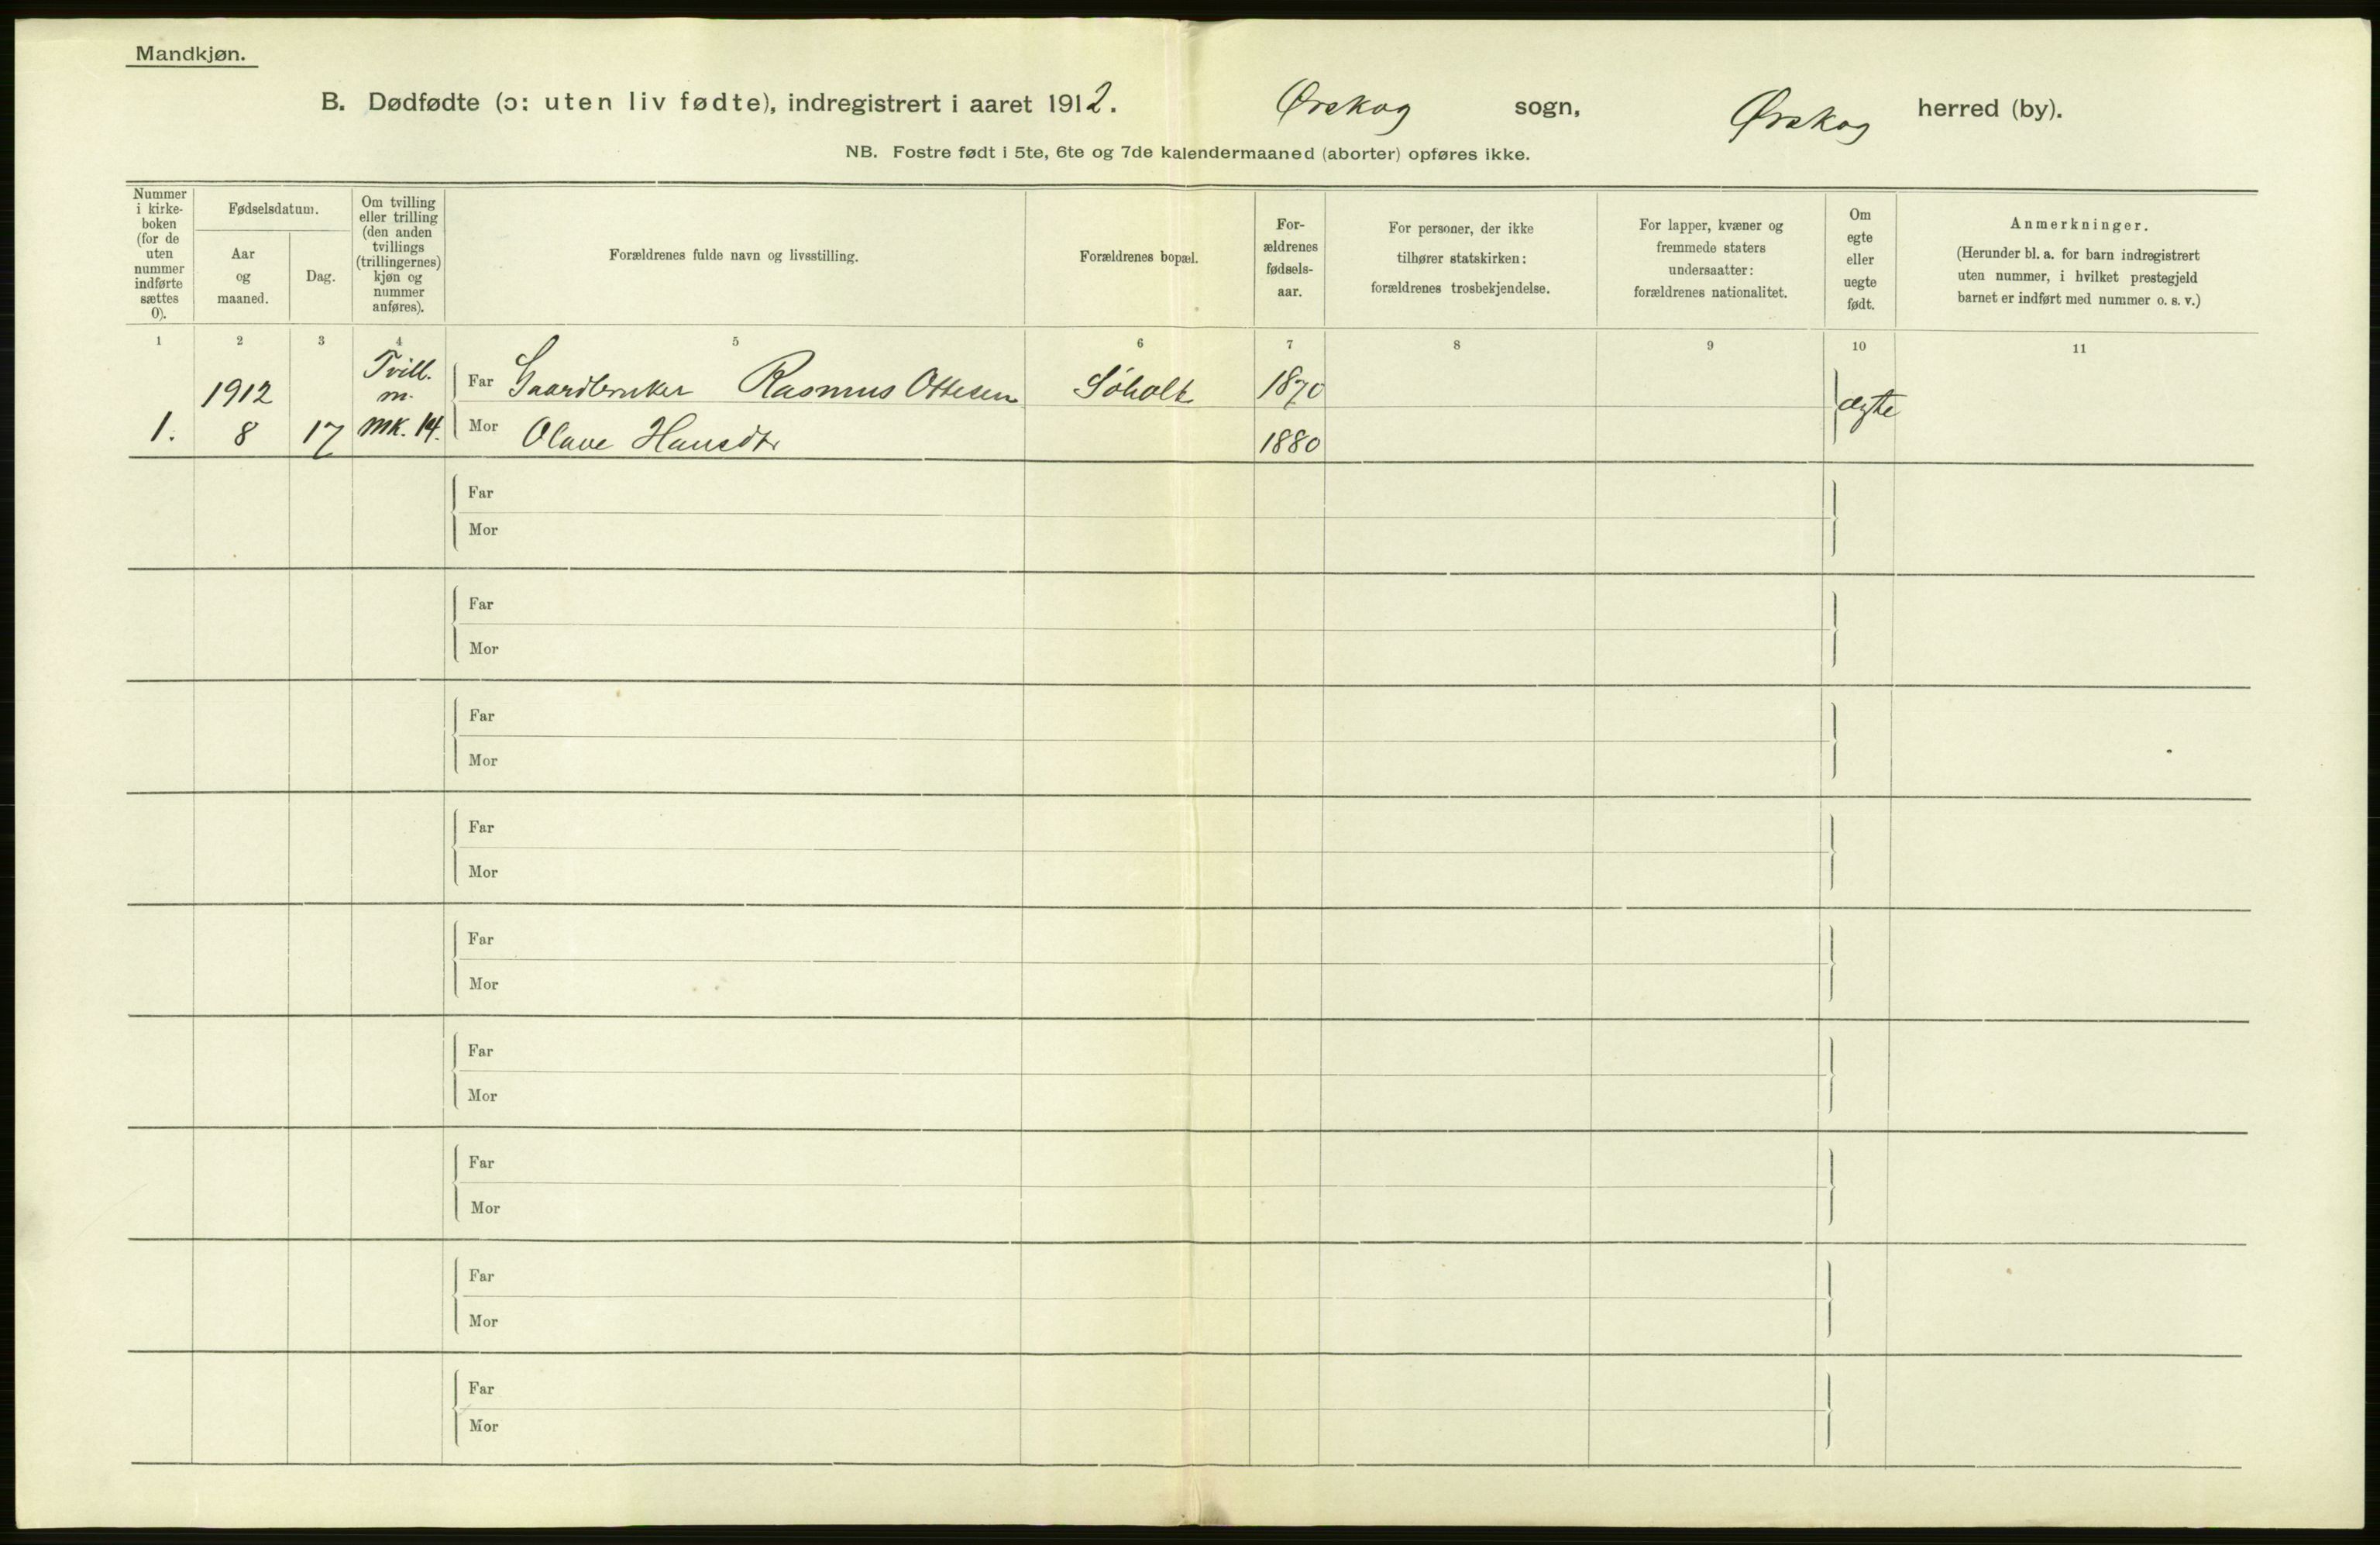 Mandkjøn.
B. Dødfødte (ɔ: uten liv fødte), indregistrert i aaret 1912. Ørskog sogn, Ørskog herred (by).
NB. Fostre født i 5te, 6te og 7de kalendermaaned (aborter) opføres ikke.
Nummer
i kirke-
boken
(for de
uten
nummer
indførte
sættes
0).
Fødselsdatum.
Aar
og
maaned.
Dag.
Om tvilling
eller trilling
(den anden
tvillings
(trillingernes)
kjøn og
nummer
anføres).
Forældrenes fulde navn og livsstilling.
Forældrenes bopæl.
For-
ældrenes
fødsels-
aar.
For personer, der ikke
tilhører statskirken:
forældrenes trosbekjendelse.
For lapper, kvæner og
fremmede staters
undersaatter:
forældrenes nationalitet.
Om
egte
eller
uegte
født.
Anmerkninger.
(Herunder bl. a. for barn indregistrert
uten nummer, i hvilket prestegjeld
barnet er indført med nummer o. s. v.)
1 2 3 4 5 6 7 8 9 10 11
Tvill.
1912 m. Far Gaardbruker Rasmus Ottesen Søholt 1870 ægte
1. 8 17 mk. 14. Mor Olave Hansdtr 1880
Far
Mor
Far
Mor
Far
Mor
Far
Mor
Far
Mor
Far
Mor
Far
Mor
Far
Mor
Far
Mor